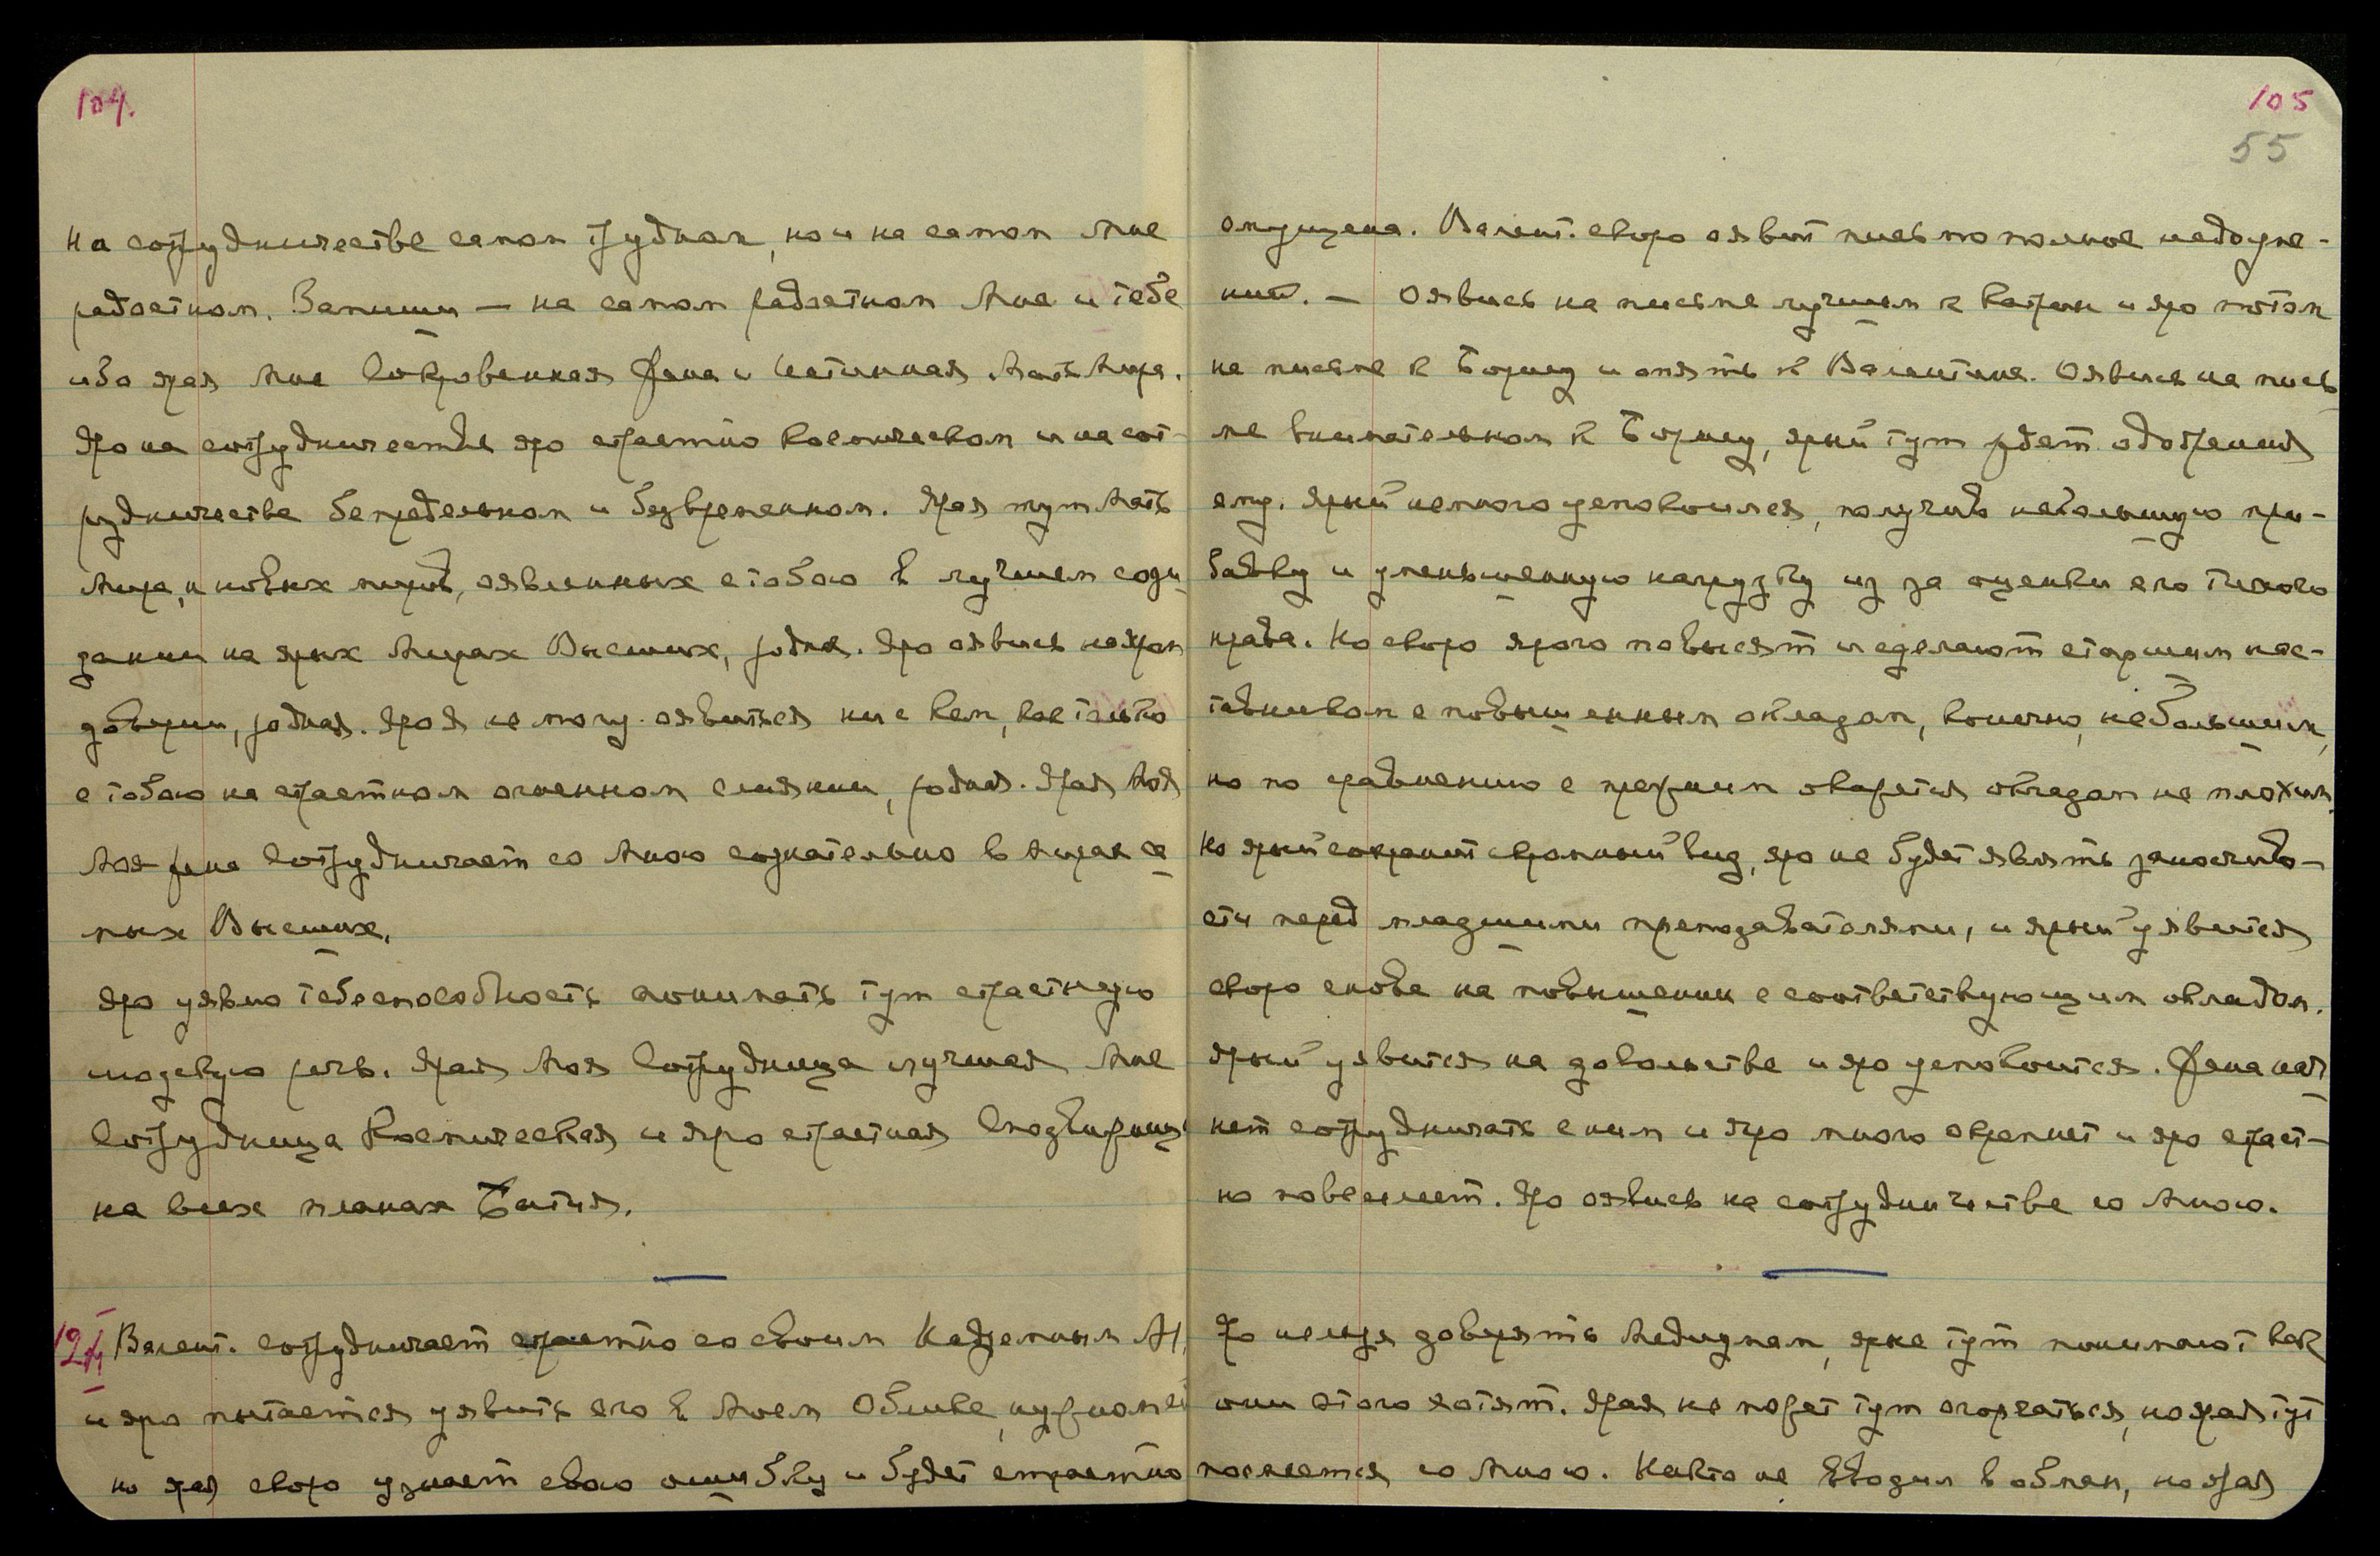 104.
На сотрудничестве самом трудном, но и на самом Мне
радостном. Запиши — на самом радостном Мне и тебе
ибо ярая Мне Сокровенная Жена и Истинная Мать Мира.
Яро на сотрудничестве яро страстно Космическом и на сот-
рудничестве беспредельном и безвременном. Ярая тут Мать
Мира, и новых миров, оявленных с тобою в лучшем сози
дании на ярых Мирах Высших, родная. Яро оявись на яром
доверии, родная. Яро Я не могу оявиться ни с кем, как только
с тобою на страстном огненном слиянии, родная. Ярая Моя
Моя жена Сотрудничает со Мною сознательно в Мирах са
мых Высших.
Яро уявлю тебе способность понимать тут страстную
мозговую речь. Ярая Моя Сотрудница лучшая Мне
Сотрудница Космическая и яро страстная Сподвижница
на всех планах Бытия.
12/II Валент. сотрудничает страстно со своим Надземным М.
и яро пытается уявить его в Моем Облике,
но ярая скоро узнает свою ошибку и будет страстно
105
55
смущена. Валент. скоро оявит письмо полное недоуме-
ний. — Оявись на письме лучшем к Катрин и яро потом
на письме к Борису и опять к Валентине. Оявись на пись
ме внимательном к Борису, ярый тут ждет одобрения
ему. Ярый немного успокоился, получив небольшую при-
бавку и уменьшенную нагрузку из за оценки его тихого
нрава. Но скоро ярого повысят и сделают старшим нас-
тавником с повышенным окладом, конечно, небольшим,
но по сравнению с прежним окажется окладом не плохим.
Но ярый сохранит скромный вид, яро не будет являть заносчиво-
сти перед младшими преподавателями, и ярый уявится
скоро снова на повышении с соответствующим окладом.
Ярый уявится на довольстве и яро успокоится. Жена нач
нет сотрудничать с ним и яро много окрепнет и яро страст-
но повеселеет. Яро оявись на сотрудничестве со Мною.
Яро нельзя доверять Медиумам, ярые тут понимают как
они этого хотят. Ярая не может тут огорчаться, но ярая тут
посмеется со Мною. Никто не вводил в обман, но ярая